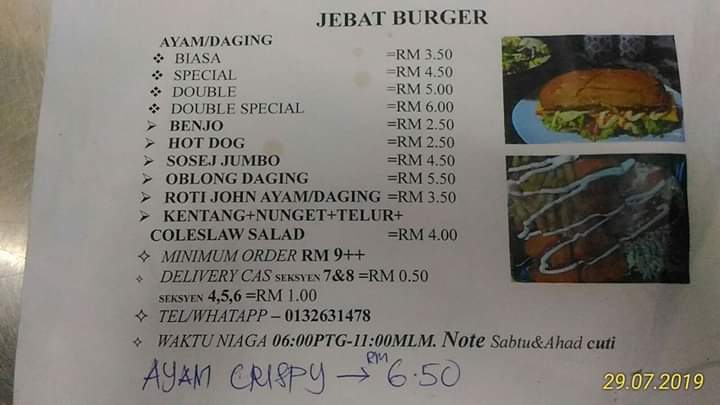 JEBAT BURGER
AYAM/DAGING
❖ BIASA =RM 3.50
❖ SPECIAL =RM 4.50
❖ DOUBLE =RM 5.00
❖ DOUBLE SPECIAL =RM 6.00
➢ BENJO =RM 2.50
➢ HOT DOG =RM 2.50
➢ SOSEJ JUMBO =RM 4.50
➢ OBLONG DAGING =RM 5.50
➢ ROTI JOHN AYAM/DAGING =RM 3.50
➢ KENTANG+NUNGET+TELUR+
COLESLAW SALAD =RM 4.00
✧ MINIMUM ORDER RM 9++
✧ DELIVERY CAS SEKSYEN 7&8 =RM 0.50
SEKSYEN 4,5,6 =RM 1.00
✧ TEL/WHATAPP – 0132631478
✧ WAKTU NIAGA 06:00PTG-11:00MLM. Note Sabtu&Ahad cuti
AYAM CRISPY → RM 6.50
29.07.2019